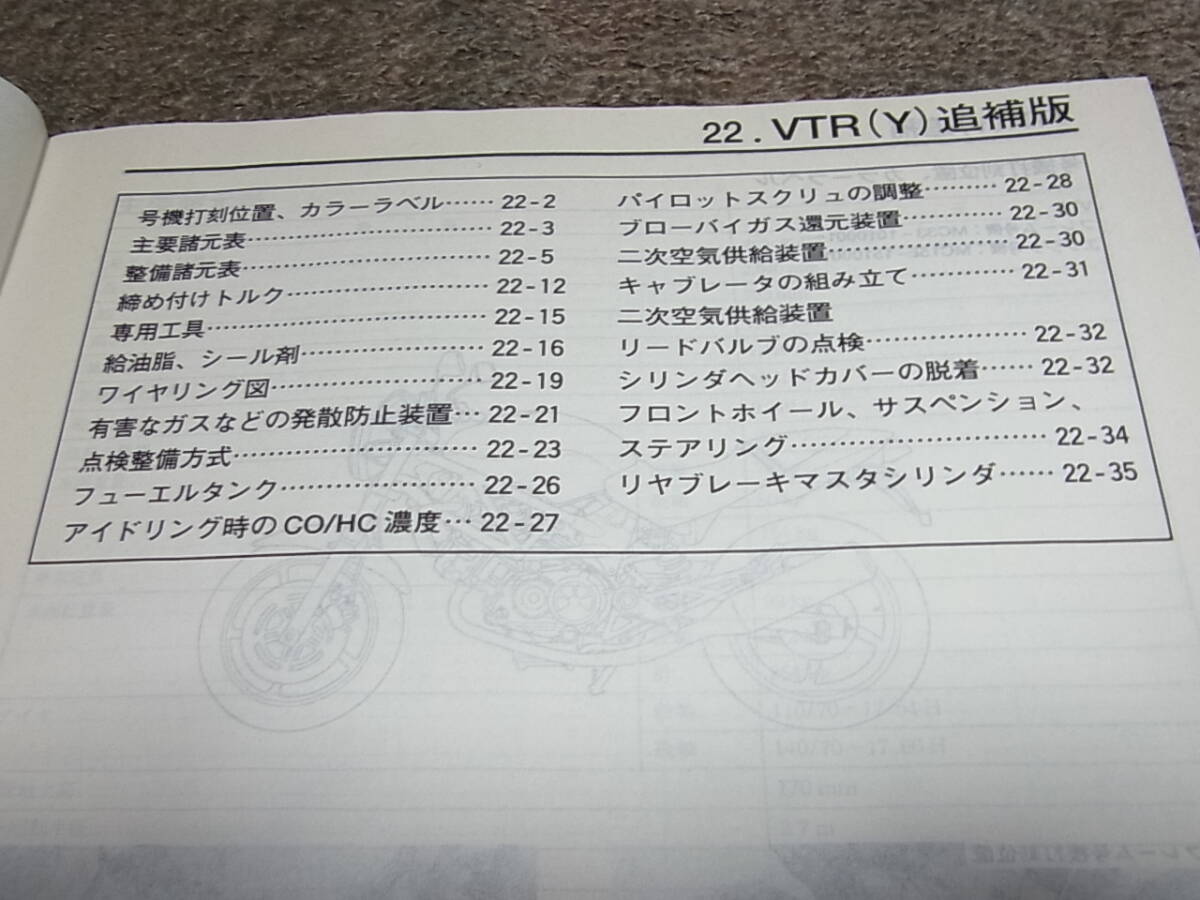 22. VTR(Y)追補版
号機打刻位置、カラーラベル……22-2
主要諸元表……22-3
整備諸元表……22-5
締め付けトルク……22-12
専用工具……22-15
給油脂、シール剤……22-16
ワイヤリング図……22-19
有害なガスなどの発散防止装置…22-21
点検整備方式……22-23
フューエルタンク……22-26
アイドリング時のCO/HC濃度…22-27
パイロットスクリュの調整………22-28
ブローバイガス還元装置…………22-30
二次空気供給装置……22-30
キャブレータの組み立て…………22-31
二次空気供給装置
リードバルブの点検……22-32
シリンダヘッドカバーの脱着……22-32
フロントホイール、サスペンション、
ステアリング……22-34
リヤブレーキマスタシリンダ……22-35